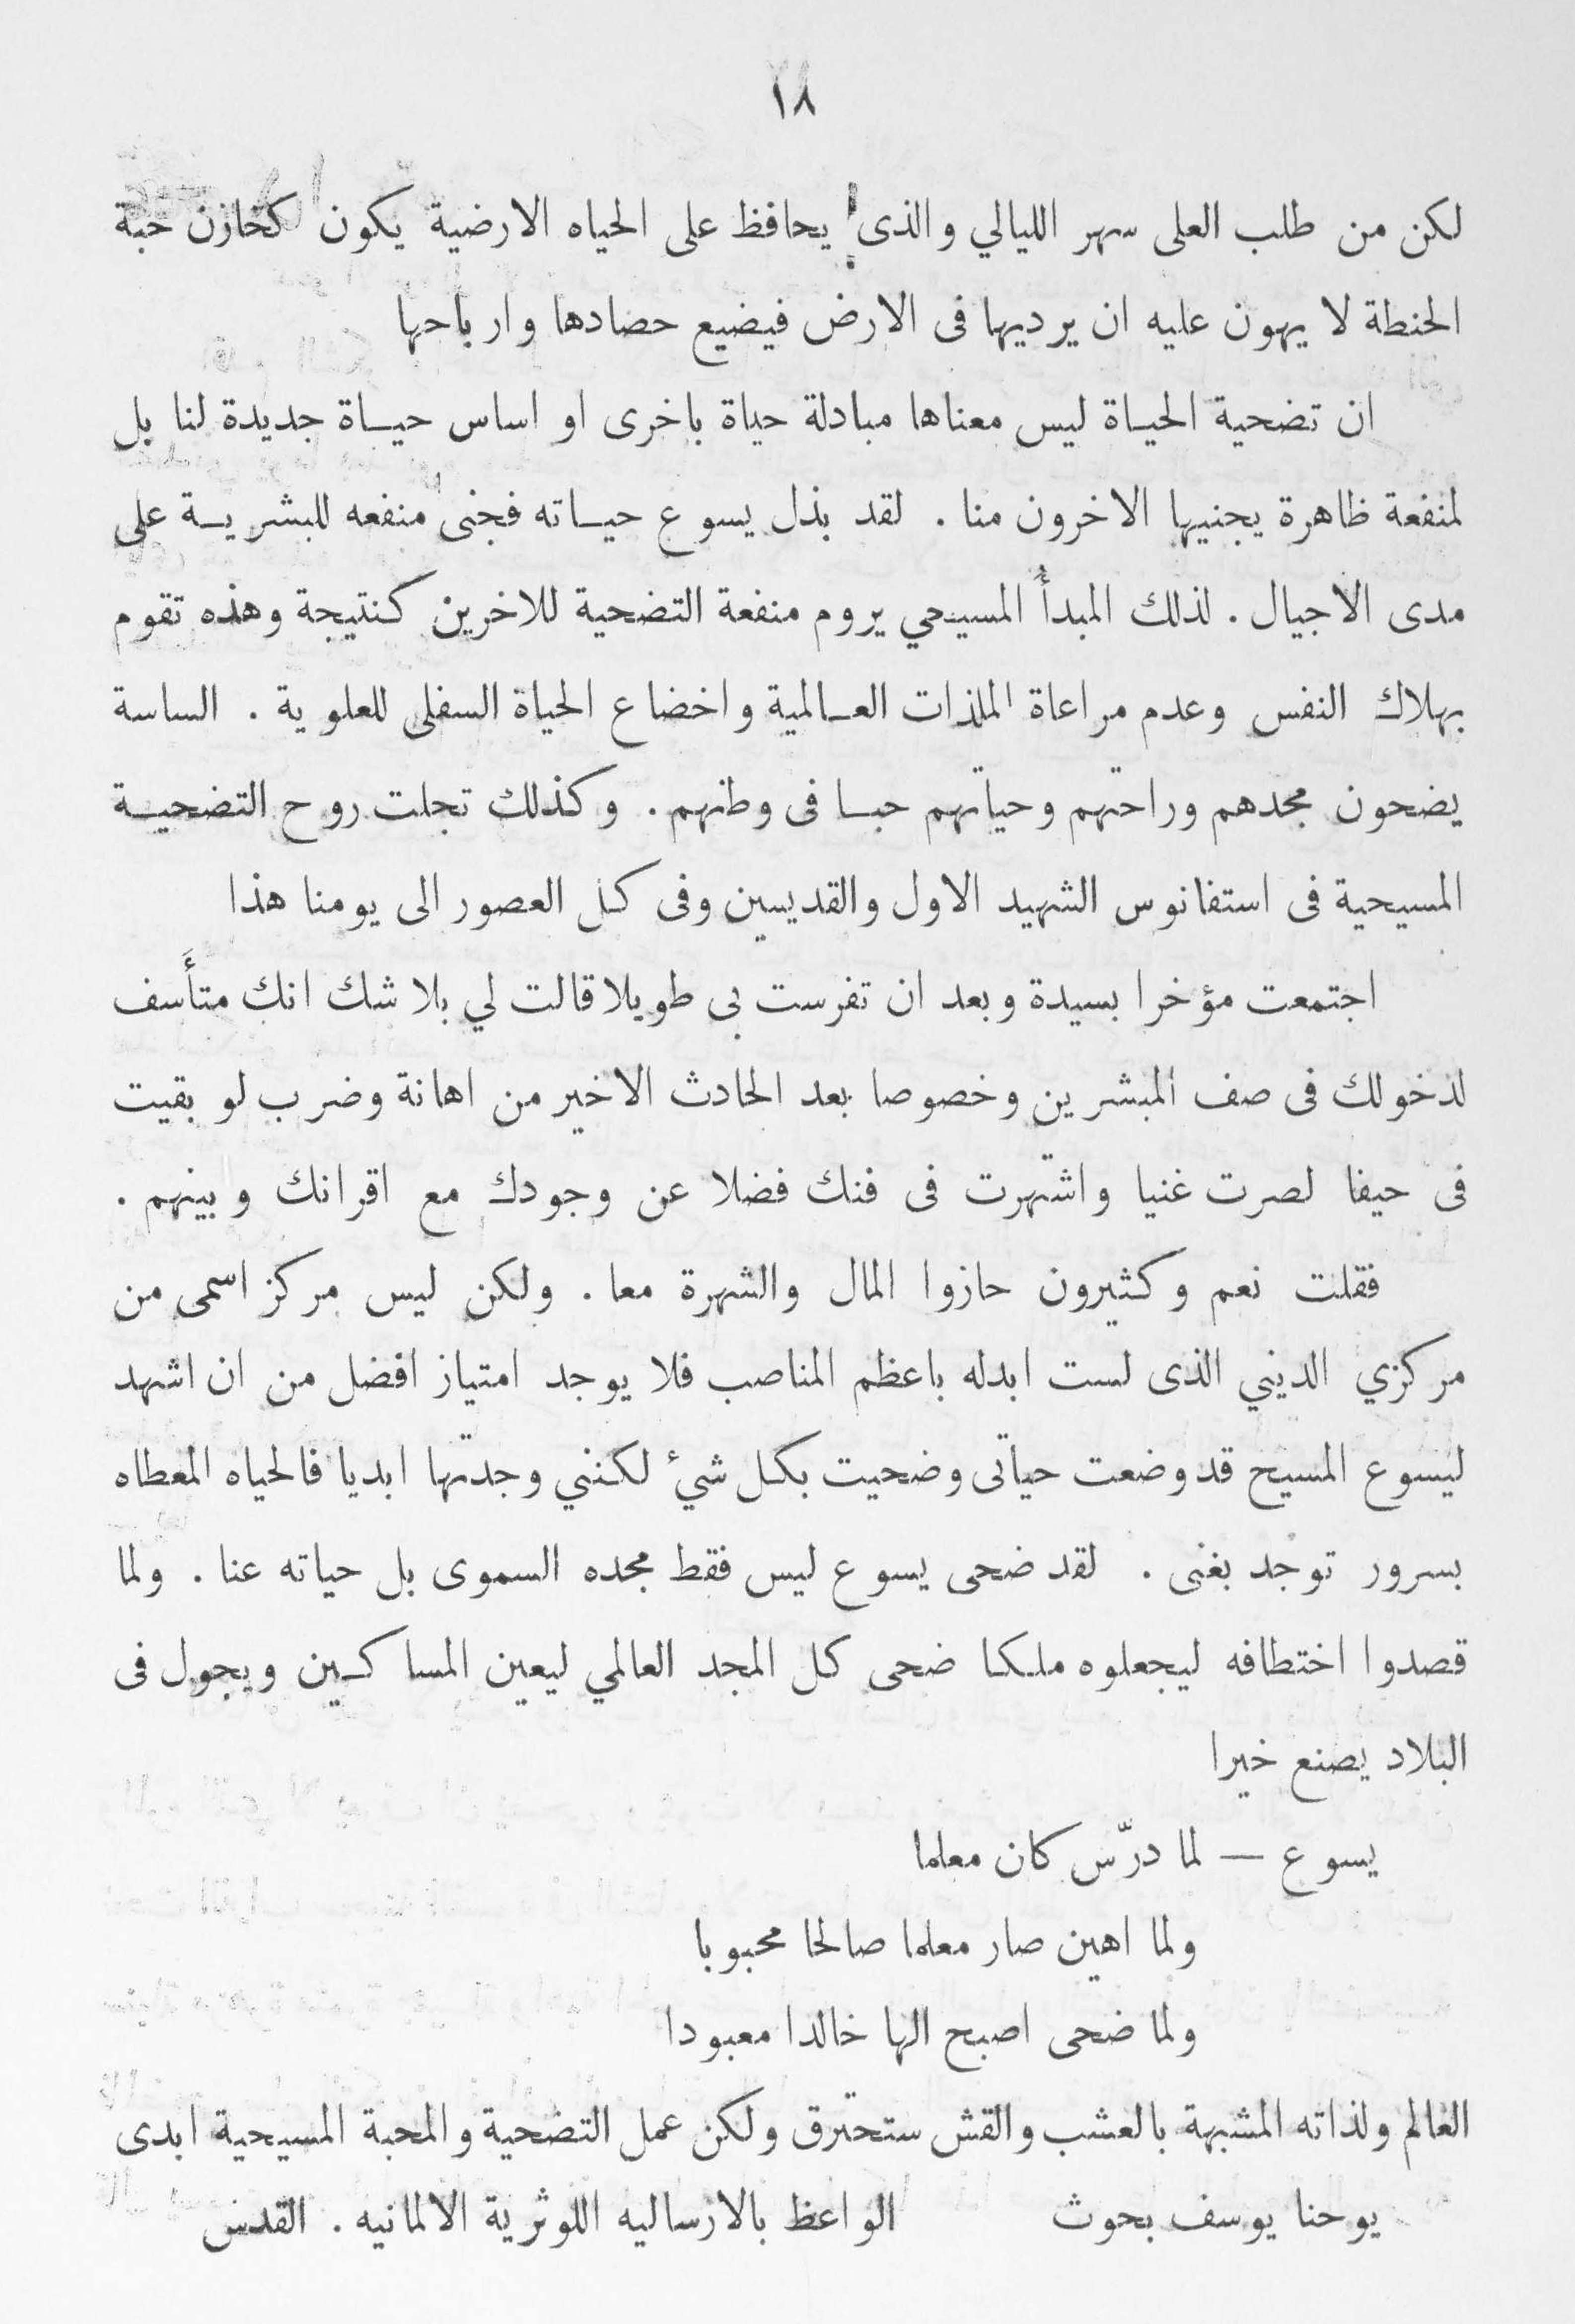 ١٨
لكن من طلب العلى سهر الليالي والذى يحافظ على الحياه الارضية يكون كخازن حبة
الحنطة لا يهون عليه ان يرديها فى الارض فيضيع حصادها وارباحها
ان تضحية الحياة ليس معناها مبادلة حياة باخرى او اساس حياة جديدة لنا بل
لمنفعة ظاهرة يجنيها الاخرون منا . لقد بذل يسوع حياته فجنى منفعه للبشرية على
مدى الاجيال . لذلك المبدأ المسيحي يروم منفعة التضحية للاخرين كنتيجة وهذه تقوم
بهلاك النفس وعدم مراعاة الملذات العالمية واخضاع الحياة السفلى للعلوية . الساسة
يضحون مجدهم وراحتهم وحياتهم حبا فى وطنهم . وكذلك تجلت روح التضحية
المسيحية فى استفانوس الشهيد الاول والقديسين وفى كل العصور الى يومنا هذا
اجتمعت مؤخرا بسيدة وبعد ان تفرست بى طويلا قالت لي بلا شك انك متأسف
لدخولك فى صف المبشرين وخصوصا بعد الحادث الاخير من اهانة وضرب لو بقيت
فى حيفا لصرت غنيا واشتهرت فى فنك فضلا عن وجودك مع اقرانك وبينهم .
فقلت نعم وكثيرون حازوا المال والشهرة معا . ولكن ليس مركز اسمى من
مركزي الديني الذى لست ابدله باعظم المناصب فلا يوجد امتياز افضل من ان اشهد
ليسوع المسيح قد وضعت حياتى وضحيت بكل شيء لكنني وجدتها ابديا فالحياه المعطاه
بسرور توجد بغنى . لقد ضحى يسوع ليس فقط مجده السموى بل حياته عنا . ولما
قصدوا اختطافه ليجعلوه ملكا ضحى كل المجد العالمي ليعين المساكين ويجول فى
البلاد يصنع خيرا
يسوع — لما درّس كان معلما
ولما اهين صار معلما صالحا محبوبا
ولما ضحى اصبح الها خالدا معبودا
العالم ولذاته المشبهة بالعشب والقش ستحترق ولكن عمل التضحية والمحبة المسيحية ابدى
يوحنا يوسف بحوث الواعظ بالارساليه اللوثرية الالمانيه . القدس